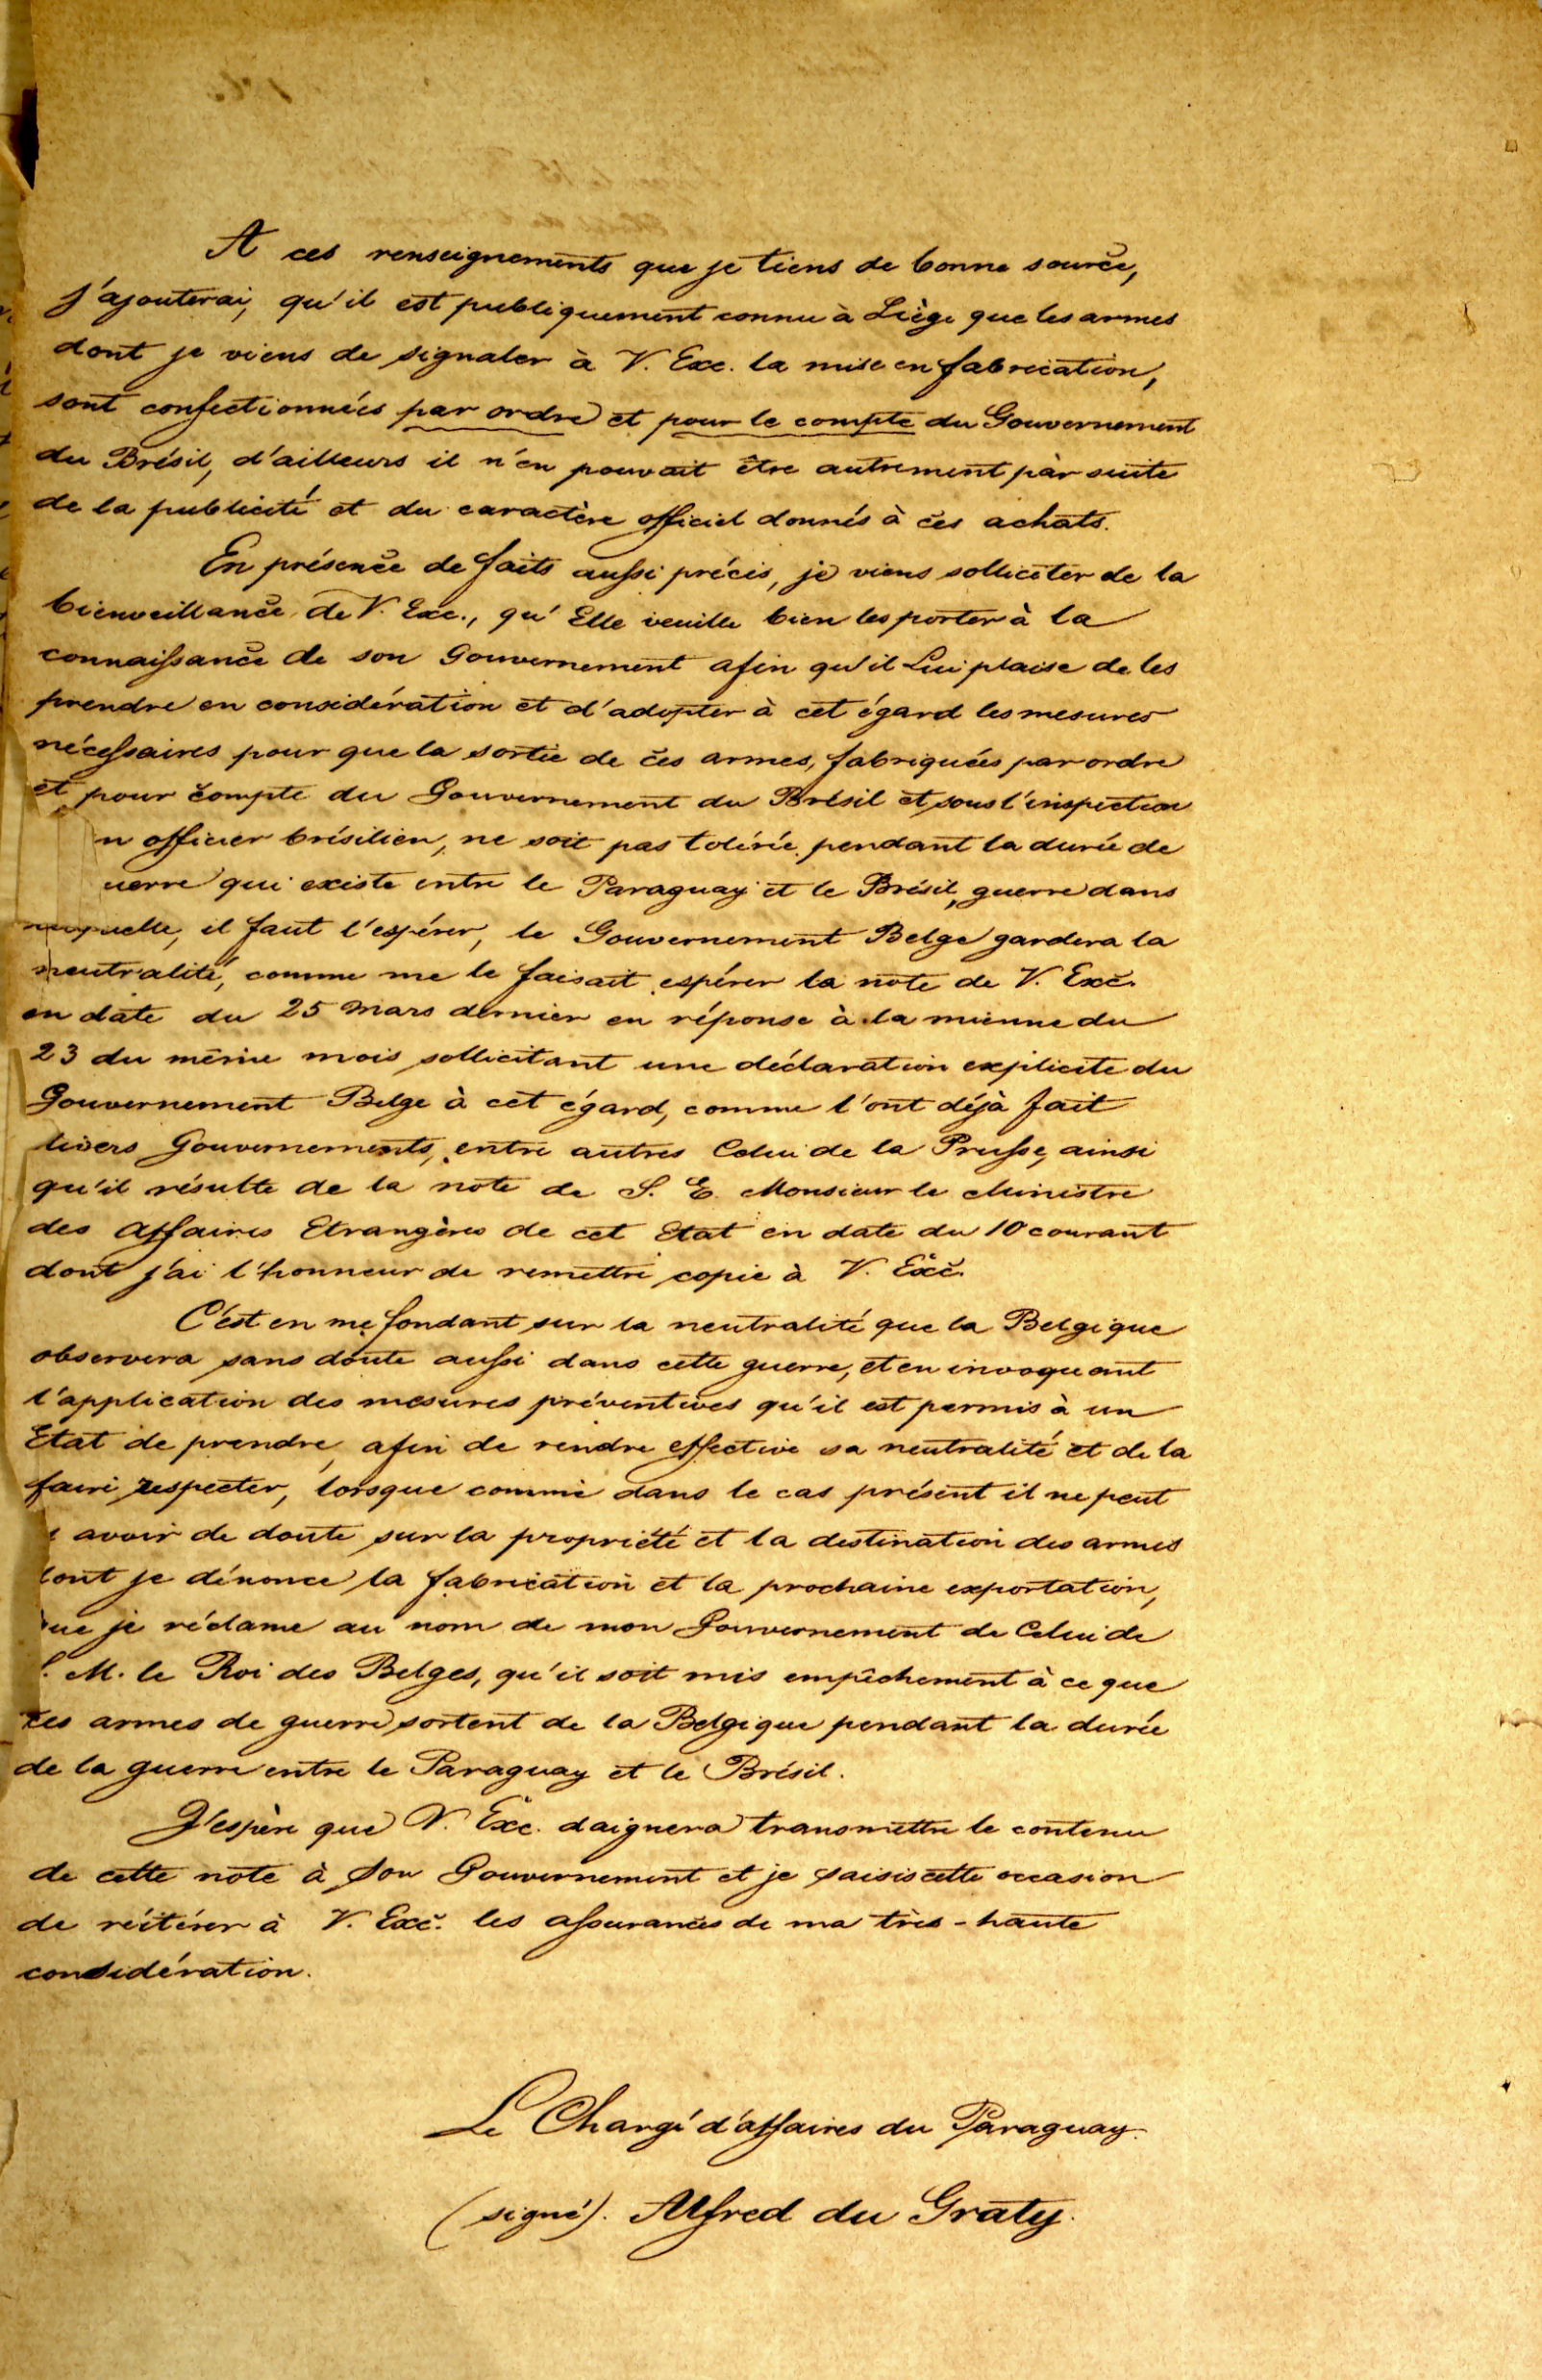 A ces renseignements que je tiens de bonne source,
j'ajouterai, qu'il est publiquement connu à Liège que les armes
dont je viens de signaler à V. Exc. la mise en fabrication,
sont confectionnées par ordre et pour le compte du Gouvernement
du Brésil, d'ailleurs il n'en pouvait être autrement par suite
de la publicité et du caractère officiel donnés à ces achats.
En présence de faits aussi précis, je viens solliciter de la
bienveillance de V. Exc., qu'Elle veuille bien les porter à la
connaissance de son Gouvernement afin qu'il Lui plaise de les
prendre en considération et d'adopter à cet égard les mesures
nécessaires pour que la sortie de ces armes, fabriquées par ordre
et pour compte du Gouvernement du Brésil et sous l'inspection
n officier brésilien, ne soit pas tolérée pendant la durée de
uerre qui existe entre le Paraguay et le Brésil, guerre dans
quelle, il faut l'espérer, le Gouvernement Belge gardera la
neutralité, comme me le faisait espérer la note de V. Exc.
en date du 25 Mars dernier en réponse à la mienne du
23 du même mois sollicitant une déclaration explicite du
Gouvernement Belge à cet égard, comme l'ont déjà fait
divers Gouvernements, entre autres Celui de la Prusse, ainsi
qu'il résulte de la note de S. E. Monsieur le Ministre
des Affaires Etrangères de cet Etat en date du 10 courant
dont j'ai l'honneur de remettre copie à V. Exc.
C'est en me fondant sur la neutralité que la Belgique
observera sans doute aussi dans cette guerre, et en invoquant
l'application des mesures préventives qu'il est permis à un
Etat de prendre, afin de rendre effective sa neutralité et de la
faire respecter, lorsque comme dans le cas présent il ne peut
avoir de doute sur la propriété et la destination des armes
dont je dénonce la fabrication et la prochaine exportation,
que je réclame au nom de mon Gouvernement de Celui de
S. M. le Roi des Belges, qu'il soit mis empêchement à ce que
ces armes de guerre sortent de la Belgique pendant la durée
de la guerre entre le Paraguay et le Brésil.
J'espère que V. Exc. daignera transmettre le contenu
de cette note à Son Gouvernement et je saisis cette occasion
de réitérer à V. Exc. les assurances de ma très-haute
considération.
Le Chargé d'affaires du Paraguay.
(signé). Alfred du Graty.